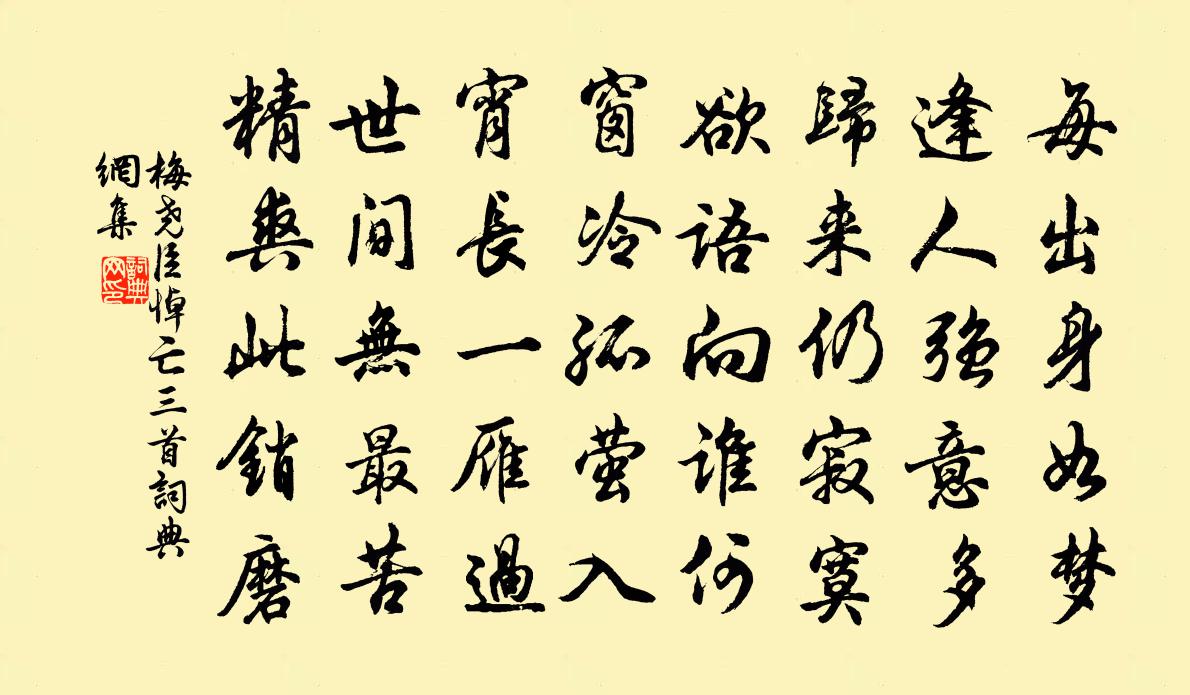 每出身如梦
逢人强意多
歸来仍寂寞
欲語向谁何
窗冷孤萤入
宵長一雁過
世间無最苦
精爽此銷磨
梅尧臣悼亡三首詞典
網集
詞典
网印